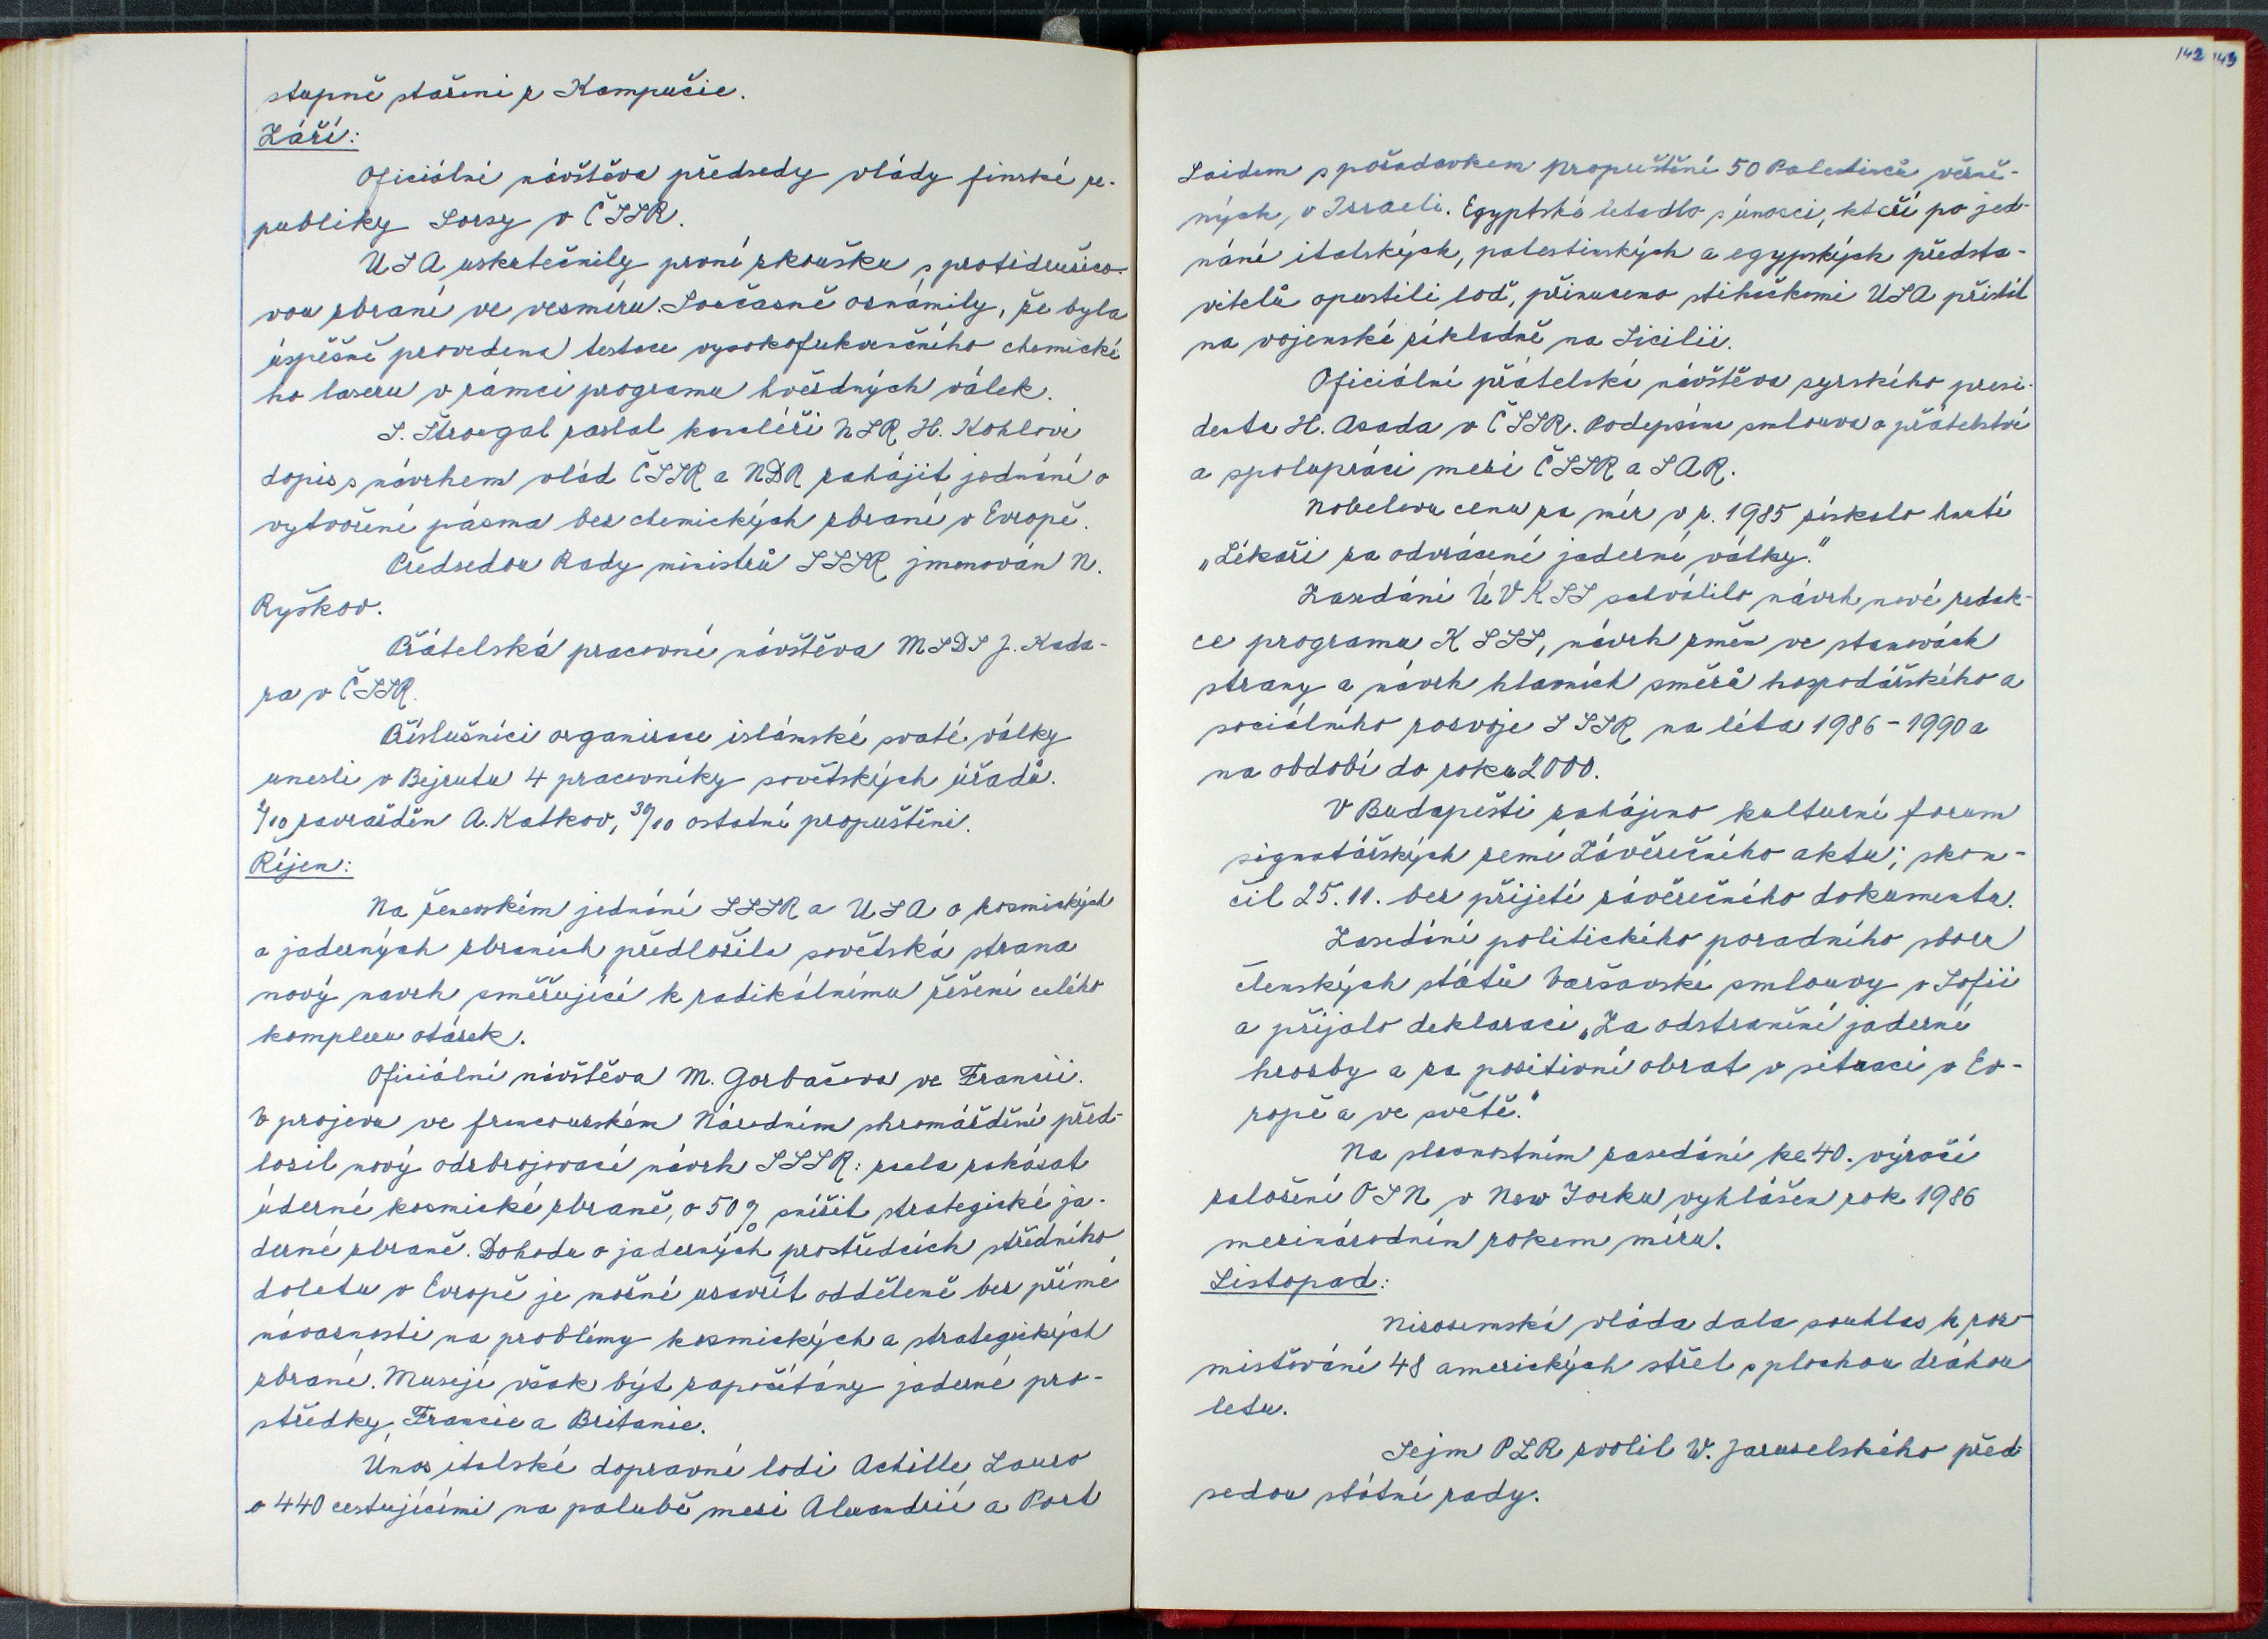 stupně stažení z Kampučie.
Září:
Oficiální návštěva předsedy vlády finské re-
publiky Sorsy v ČSSR.
USA uskutečnily první zkoušku s protidružico-
vou zbraní ve vesmíru. Současně oznámily, že byla
úspěšně provedena testace vysokofrekvenčního chemické
ho laseru v rámci programu hvězdných válek.
L. Štrougal zaslal kancléři NSR H. Kohlovi
dopis s návrhem vlád ČSSR a NDR zahájit jednání o
vytvoření pásma bez chemických zbraní v Evropě.
Předsedou Rady ministrů SSSR jmenován N.
Ryškov.
Přátelská pracovní návštěva MSDS J. Kada-
ra v ČSSR.
Příslušníci organizace islámské svaté války
unesli v Bejrutu 4 pracovníky sovětských úřadů.
2/10 zavražděn A. Katkov, 30/10 ostatní propuštěni.
Říjen:
Na ženevském jednání SSSR a USA o kosmických
a jaderných zbraních předložila sovětská strana
nový navrh směřující k radikálnímu řešení celého
komplexu otázek.
Oficiální návštěva M. Gorbačova ve Francii.
V projevu ve francouzském Národním shromáždění před-
ložil nový odzbrojovací návrh SSSR: zcela zakázat
úderné kosmické zbraně, o 50% snížit strategické ja-
derné zbraně. Dohodu o jaderných prostředcích středního
doletu v Evropě je možné uzavřít odděleně bez přímé
návaznosti na problémy kosmických a strategických
zbraní. Musejí však být započítány jaderné pro-
středky Francie a Britanie.
Únos italské dopravní lodi Achille Lauro
s 440 cestujícími na palubě mezi Alexandrií a Port
142 143
Saidem s požadavkem propuštění 50 Palestinců vězně-
ných v Israeli. Egyptské letadlo s únosci, kteří po jed-
nání italských, palestinských a egypských předsta-
vitelů opustili loď, přinuceno stíhačkami USA přistát
na vojenské základně na Sicilii.
Oficiální přátelská návštěva syrského presi-
denta H. Asada v ČSSR. Podepsána smlouva o přátelství
a spolupráci mezi ČSSR a SAR.
Nobelovu cenu za mír v r. 1985 získalo hnutí
„Lékaři za odvrácení jaderné války."
Zasedání ÚV KSSS schválilo návrh nové redak-
ce programu KSSS, návrh změn ve stanovách
strany a návrh hlavních směrů hospodářského a
sociálního rozvoje SSSR na léta 1986-1990 a
na období do roku 2000.
V Budapešti zahájeno kulturní forum
signatářských zemí Závěrečného aktu; skon-
čil 25.11. bez přijetí závěrečného dokumentu.
Zasedání politického poradního sboru
členských států Varšavské smlouvy v Sofii
a přijalo deklaraci „Za odstranění jaderné
hrozby a za positivní obrat v situaci v Ev-
ropě a ve světě."
Na slavnostním zasedání ke 40. výročí
založení OSN v New Yorku vyhlášen rok 1986
mezinárodním rokem míru.
Listopad:
Nizozemská vláda dala souhlas k roz-
mísťování 48 amerických střel s plochou dráhou
letu.
Sejm PLR zvolil W. Jaruzelského před-
sedou státní rady.